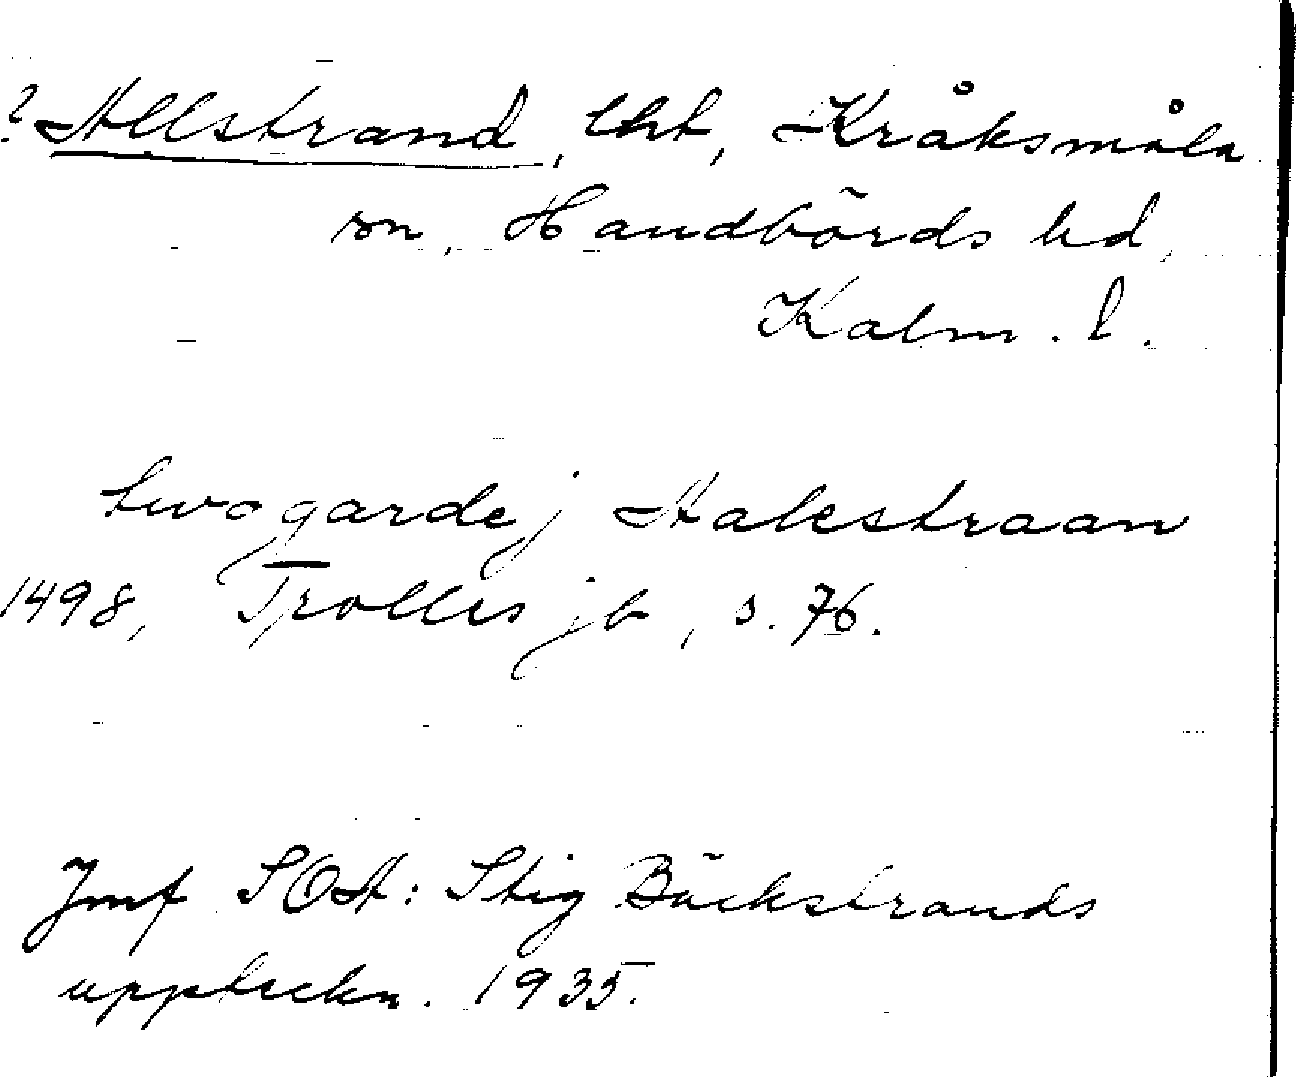 ? Allstrand, tht, Kråksmåla
sn, Handbörds hd,
Kalm. l.
two garde j Alestraan
1498, Trolles jb, s. 76.
Jmf SOA: Stig Bäckstrands
uppteckn. 1935.